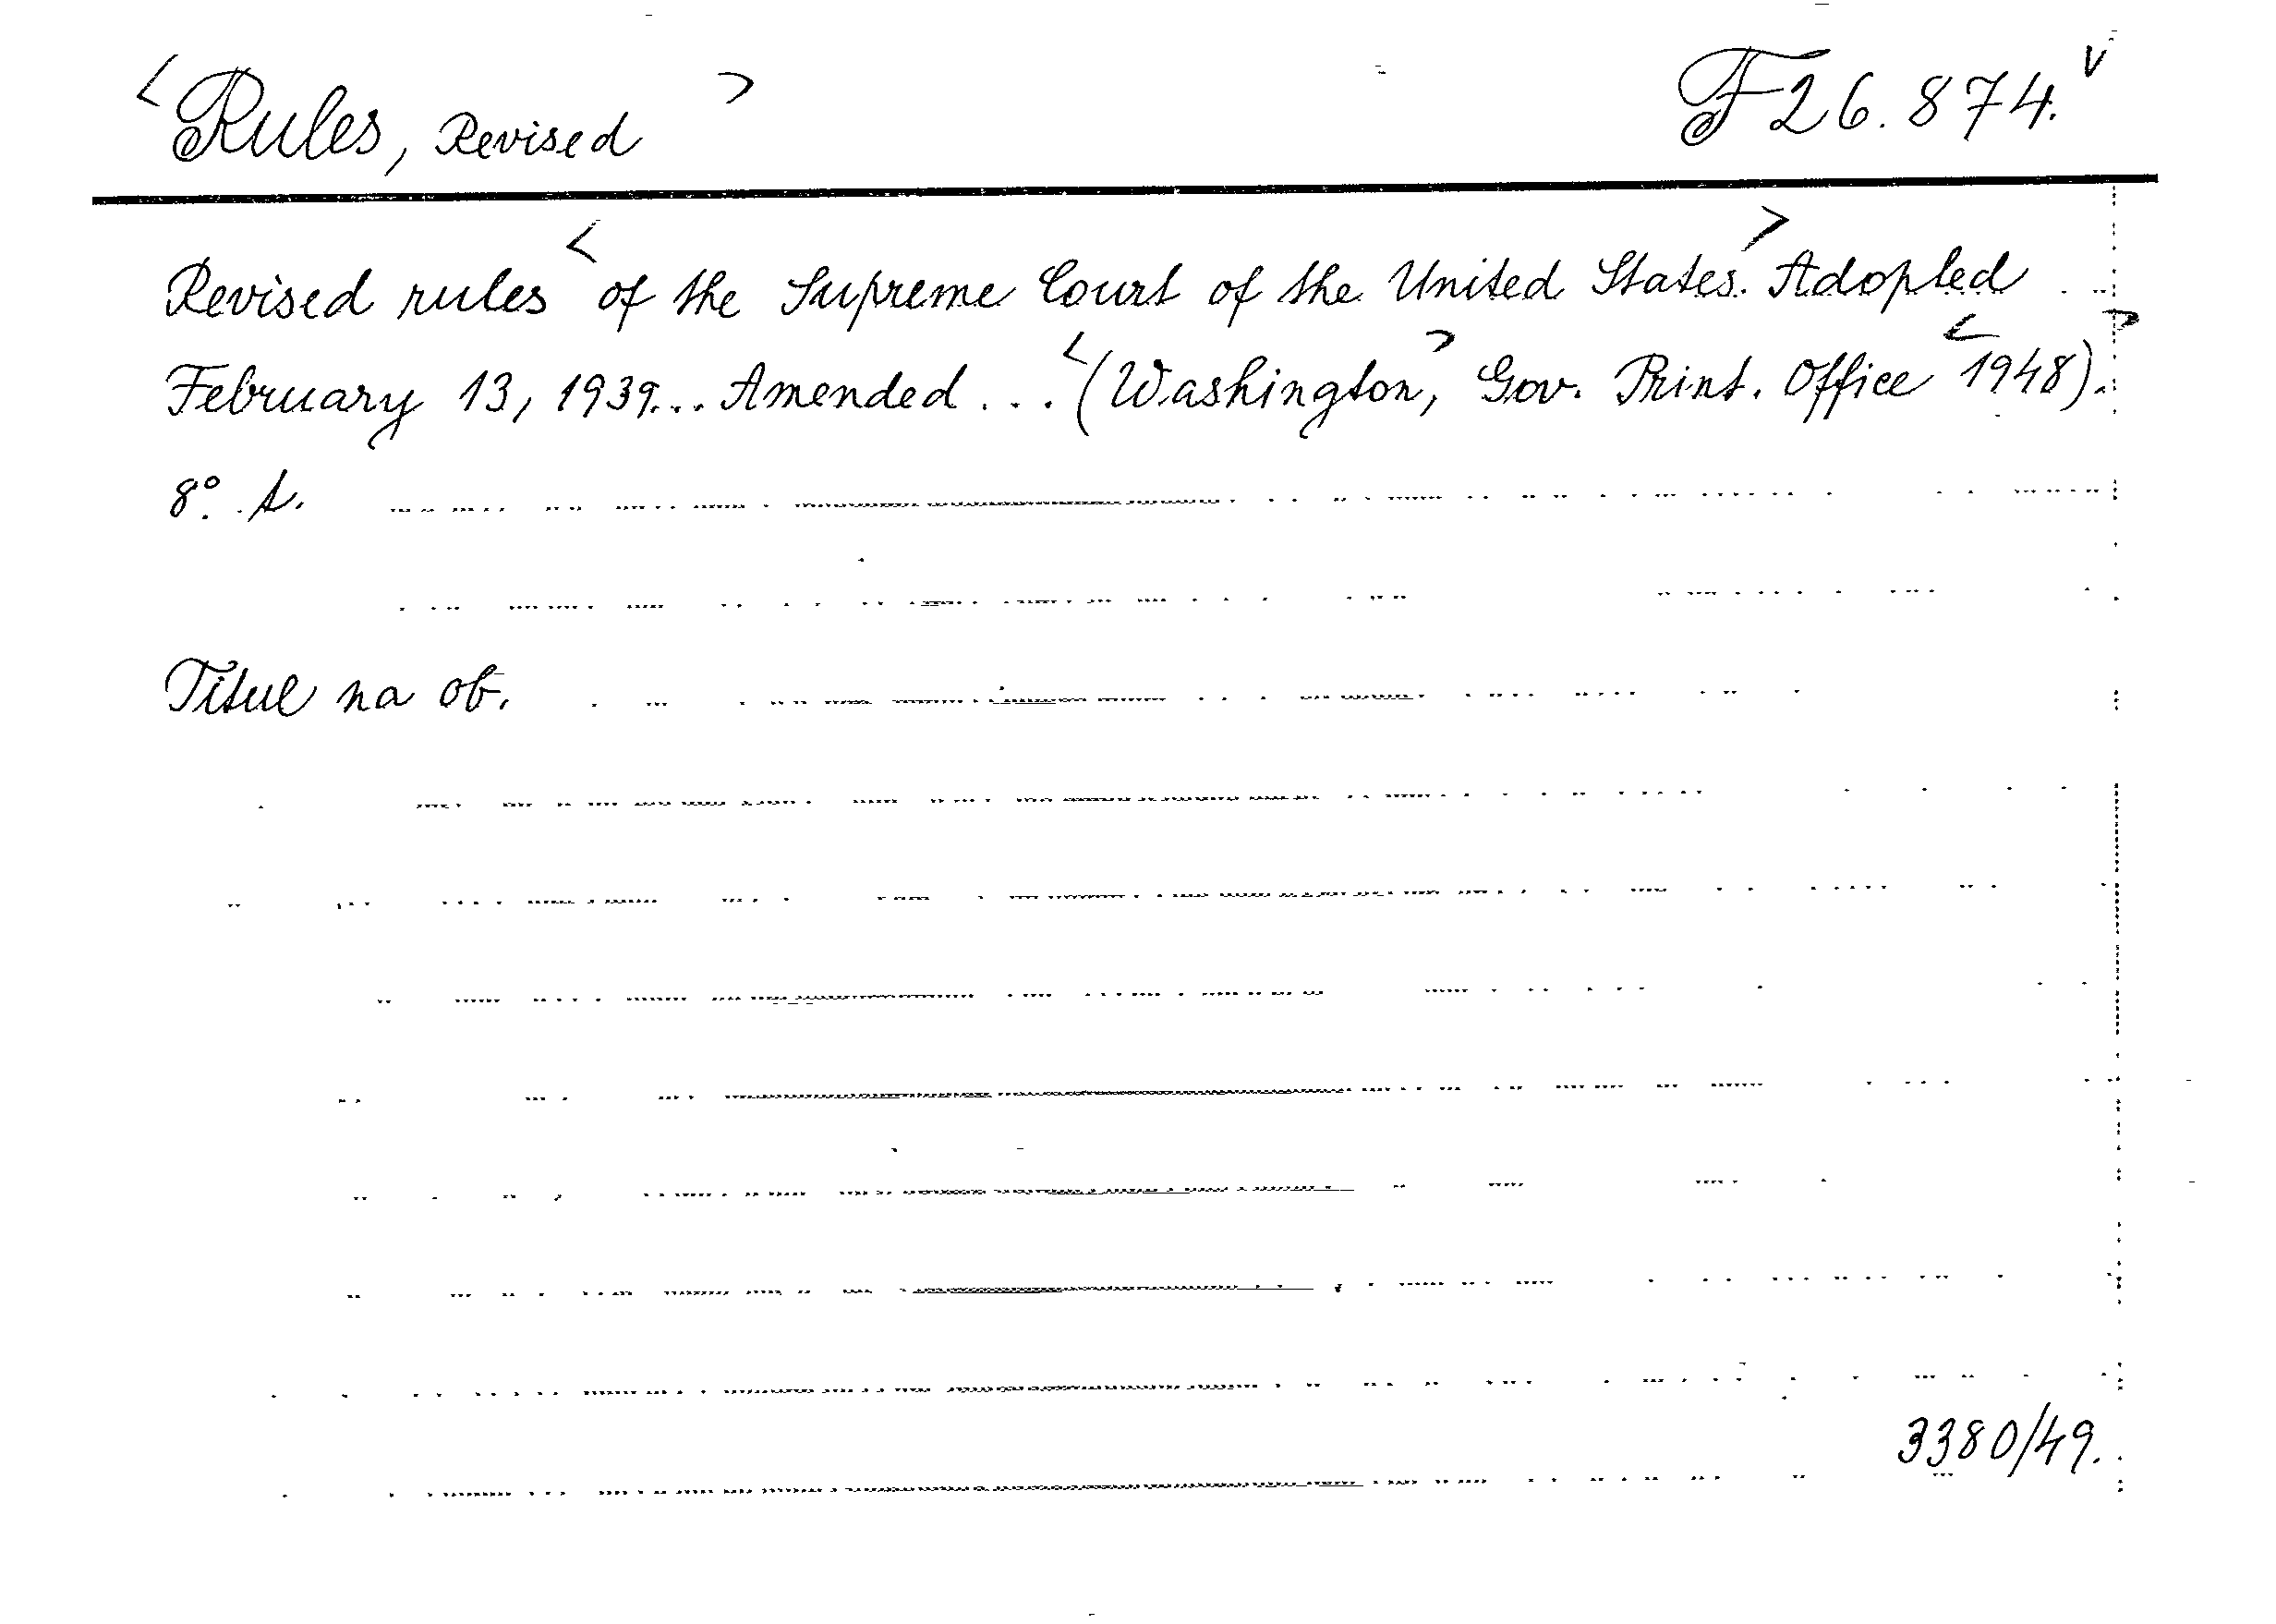 <Rules, Revised> F 26.874. v
Revised rules <of the Supreme Court of the United States.> Adopted
February 13, 1939... Amended... <(Washington,> Gov. Print. Office <1948).>
8°. A.
Titul na ob.
3380/49.